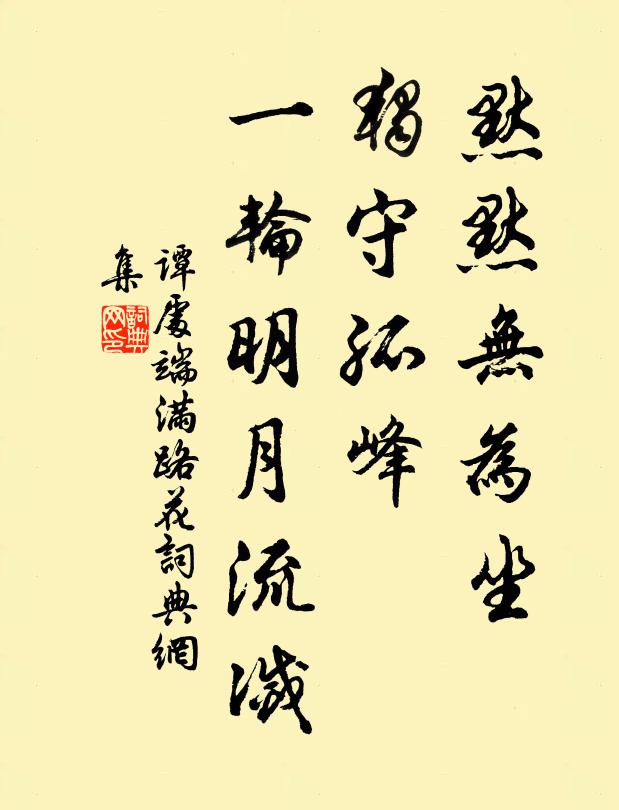 黙黙無為坐
獨守孤峰
一輪明月流
譚處端滿路花詞典網
集
詞典网印